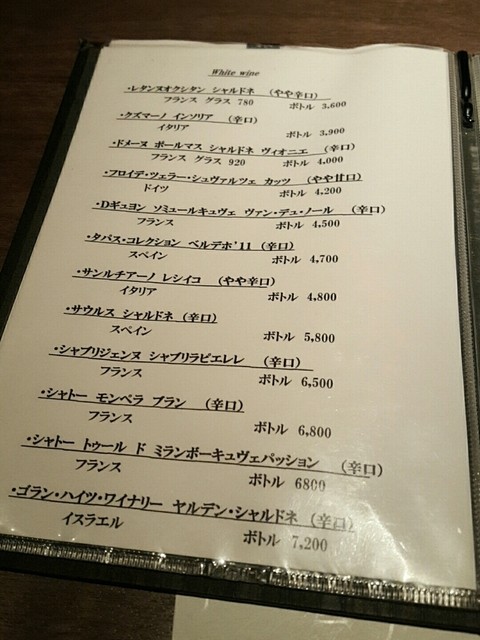 White wine
・レタンヌオクシタン シャルドネ (やや辛口)
フランス グラス 780 ボトル 3,600
・クズマーノ インソリア (辛口)
イタリア ボトル 3,900
・ドメーヌ ポールマス シャルドネ ヴィオニエ (辛口)
フランス グラス 920 ボトル 4,000
・フロイデ・ツェラー・シュヴァルツェ カッツ (やや甘口)
ドイツ ボトル 4,200
・Dギュヨン ソミュールキュヴェ ヴァン・デュ・ノール (辛口)
フランス ボトル 4,500
・タパス・コレクション ベルデホ'11 (辛口)
スペイン ボトル 4,700
・サンルチアーノ レシイコ (やや辛口)
イタリア ボトル 4,800
・サウルス シャルドネ (辛口)
スペイン ボトル 5,800
・シャブリジェンヌ シャブリラピエレレ (辛口)
フランス ボトル 6,500
・シャトー モンペラ ブラン (辛口)
フランス ボトル 6,800
・シャトー トゥール ド ミランボーキュヴェパッション (辛口)
フランス ボトル 6800
・ゴラン・ハイツ・ワイナリー ヤルデン・シャルドネ (辛口)
イスラエル ボトル 7,200